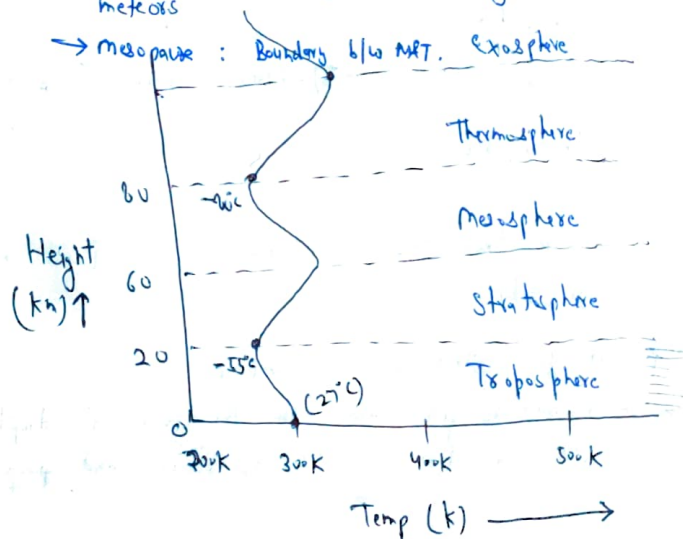 meteors
→ Mesopause : Boundary b/w M&T. Exosphere
Thermosphere
80
Mesosphere
Height
(km)↑
60
Stratosphere
20
-55°C
Troposphere
(27°C)
0
200K 300K 400K 500K
Temp (K) →